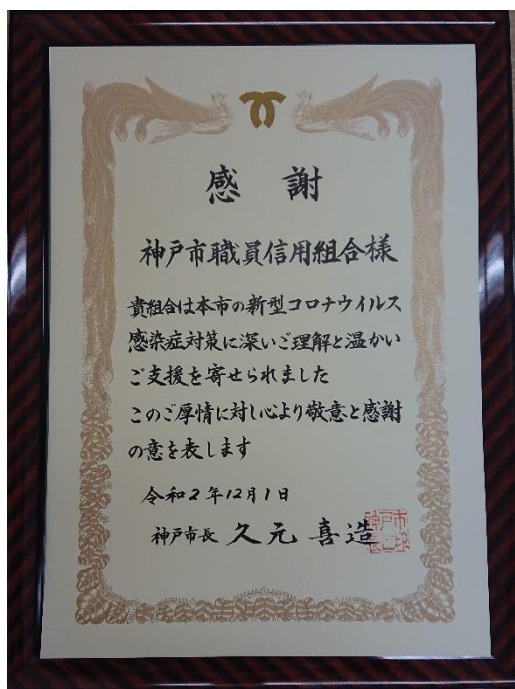 感謝
神戸市職員信用組合様
貴組合は本市の新型コロナウイルス
感染症対策に深いご理解と温かい
ご支援を寄せられました
このご厚情に対し心より敬意と感謝
の意を表します
令和2年12月1日
神戸市長 久元喜造